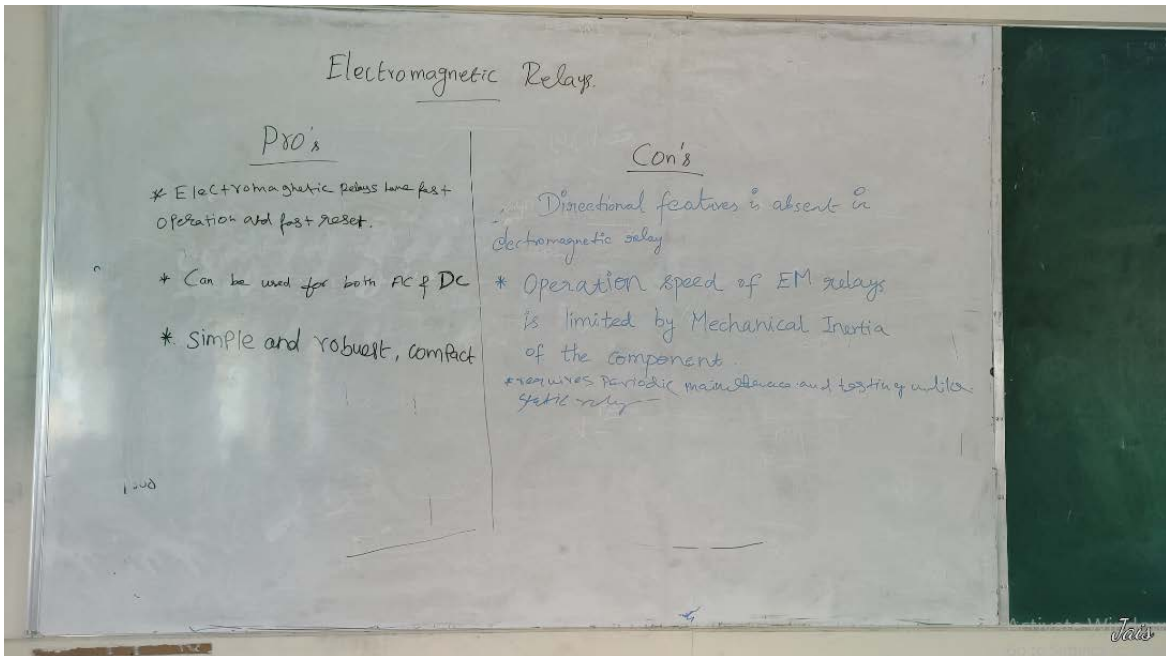 Electromagnetic Relays.
Pro's
* Electromaghetic Relays have fast
operation and fast reset.
* Can be used for both AC & DC
* Simple and robust, compact
Con's
Directional featives is absent in
electromagnetic relay
* Operation speed of EM relays
is limited by Mechanical Inertia
of the component.
* requires Periodic and testing unlike
static relay
Jais